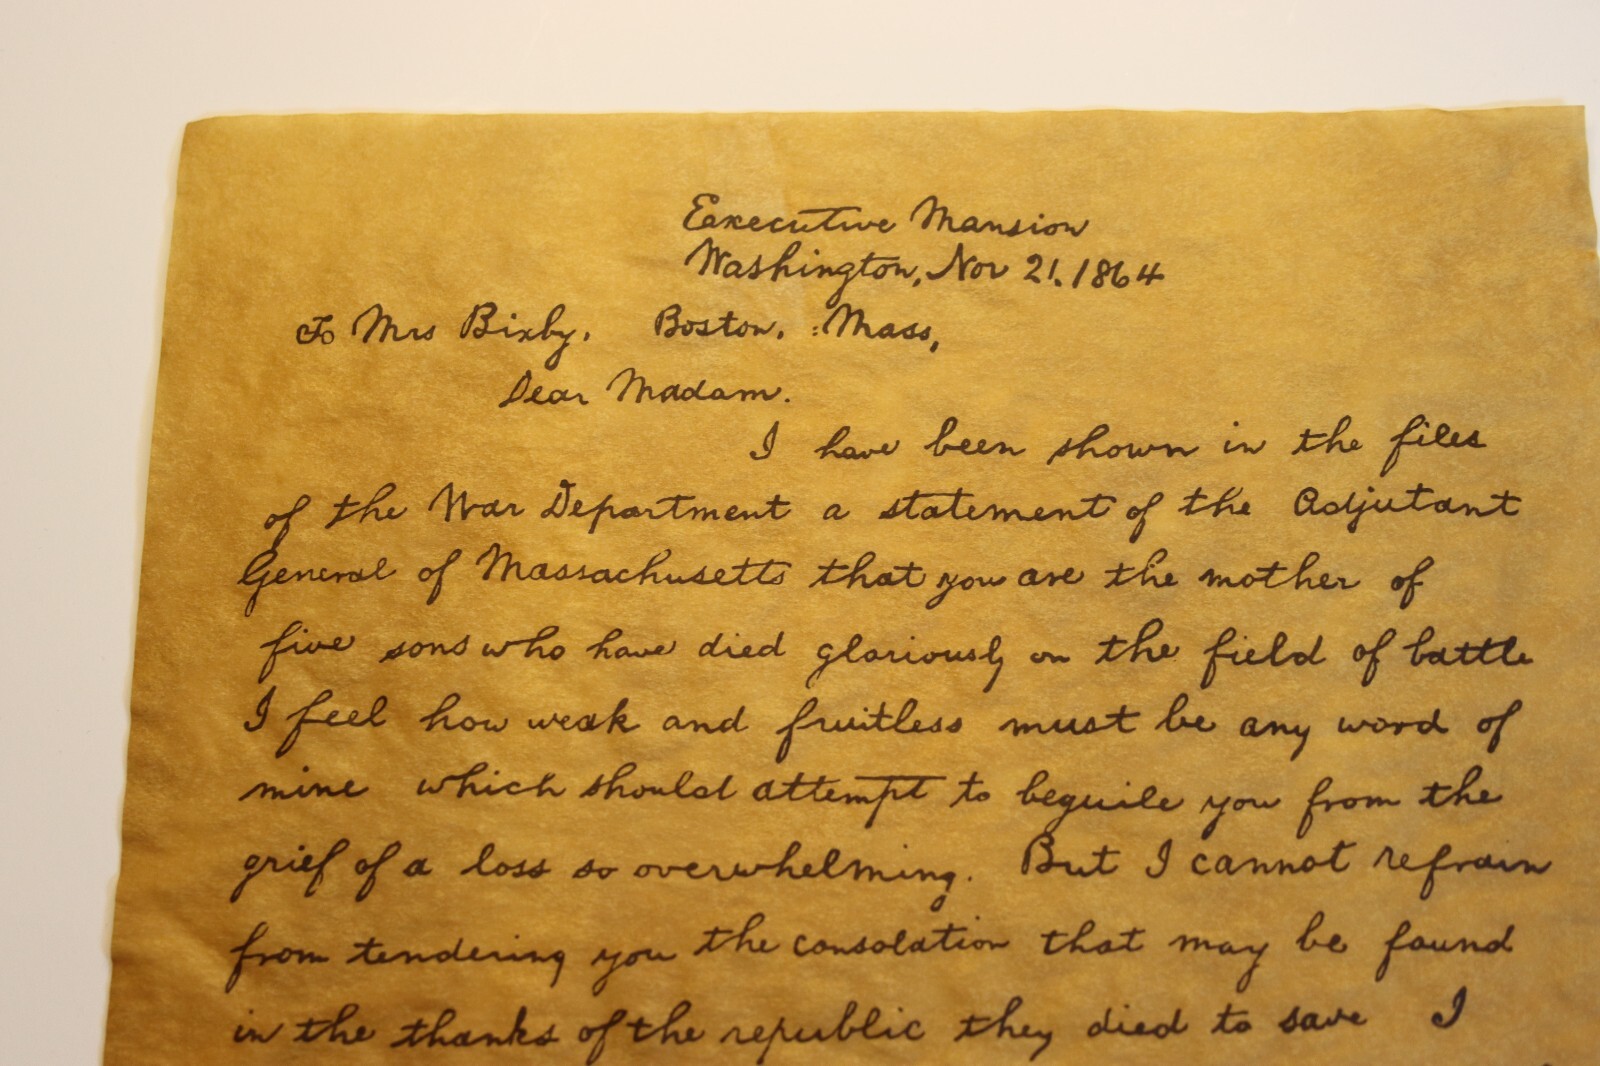 Executive Mansion
Washington, Nov 21. 1864
To Mrs Bixby. Boston. Mass,
Dear Madam.
I have been shown in the files
of the War Department a statement of the Adjutant
General of Massachusetts that you are the mother of
five sons who have died gloriously on the field of battle
I feel how weak and fruitless must be any word of
mine which should attempt to beguile you from the
grief of a loss so overwhelming. But I cannot refrain
from tendering you the consolation that may be found
in the thanks of the republic they died to save I